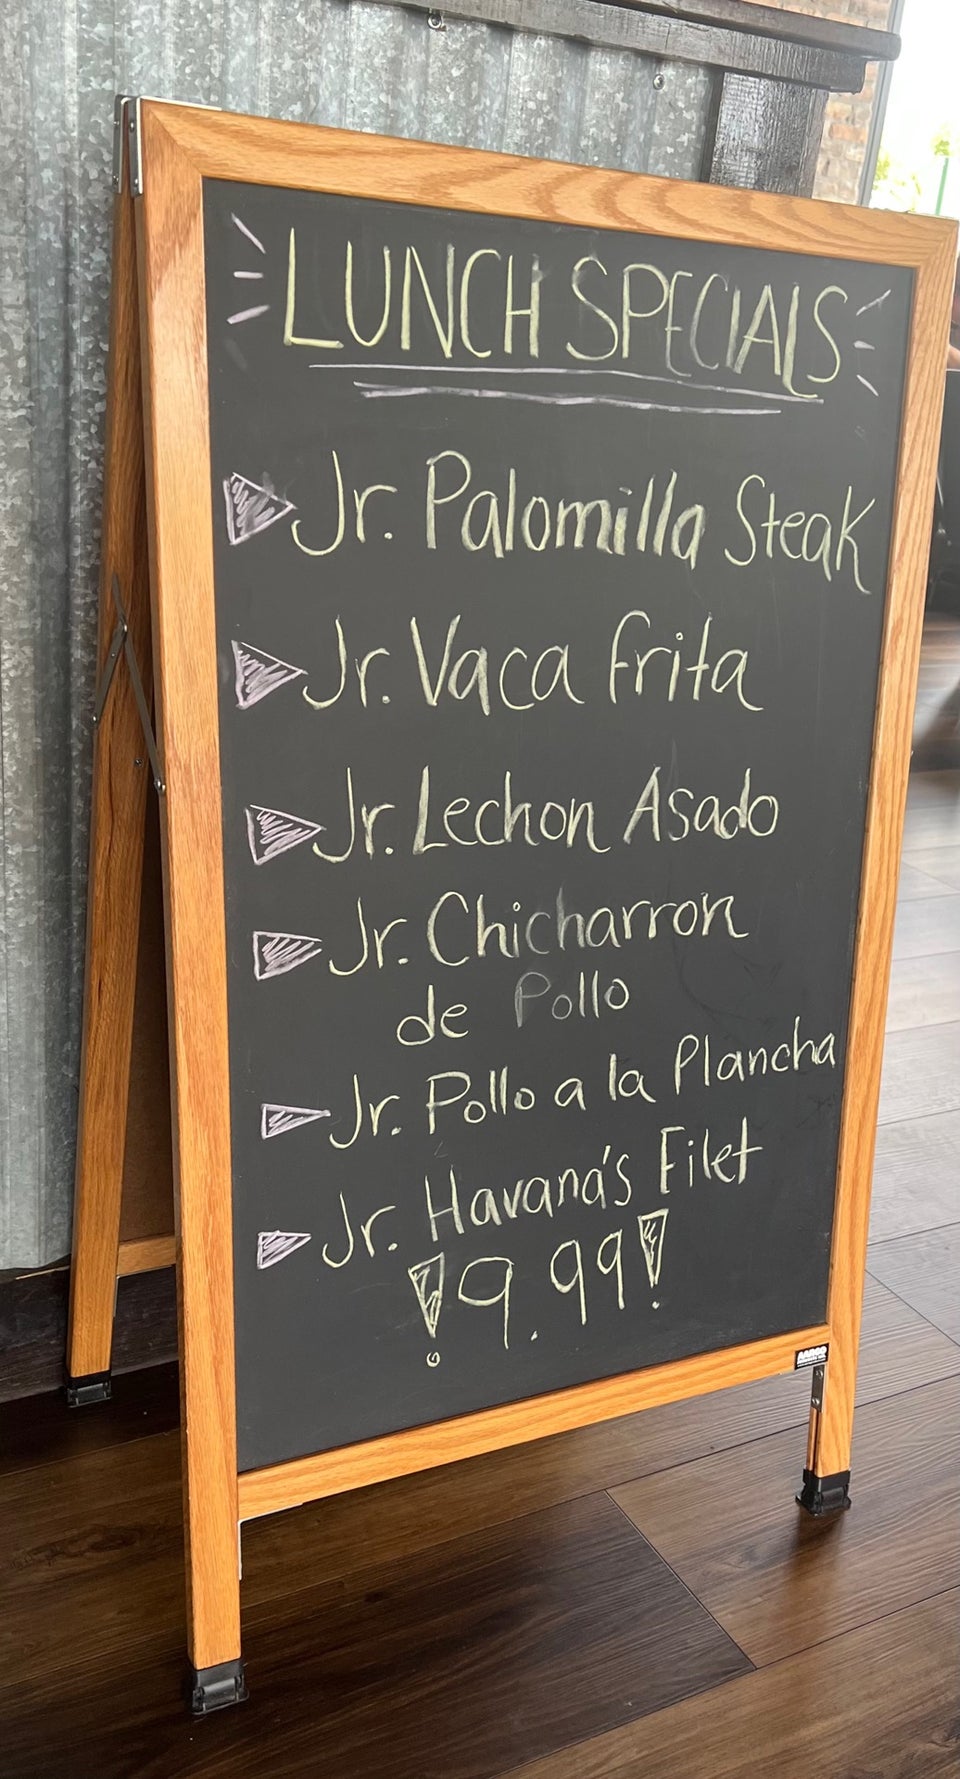 LUNCH SPECIALS
Jr. Palomilla Steak
Jr. Vaca frita
Jr. Lechon Asado
Jr. Chicharron
de Pollo
Jr. Pollo a la Plancha
Jr. Havana's Filet
!9.99!
AARCO